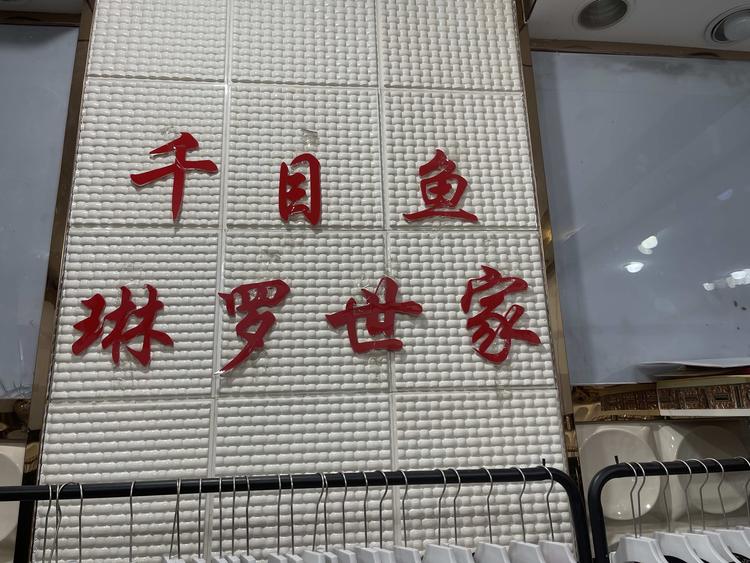 千目鱼
琳罗世家